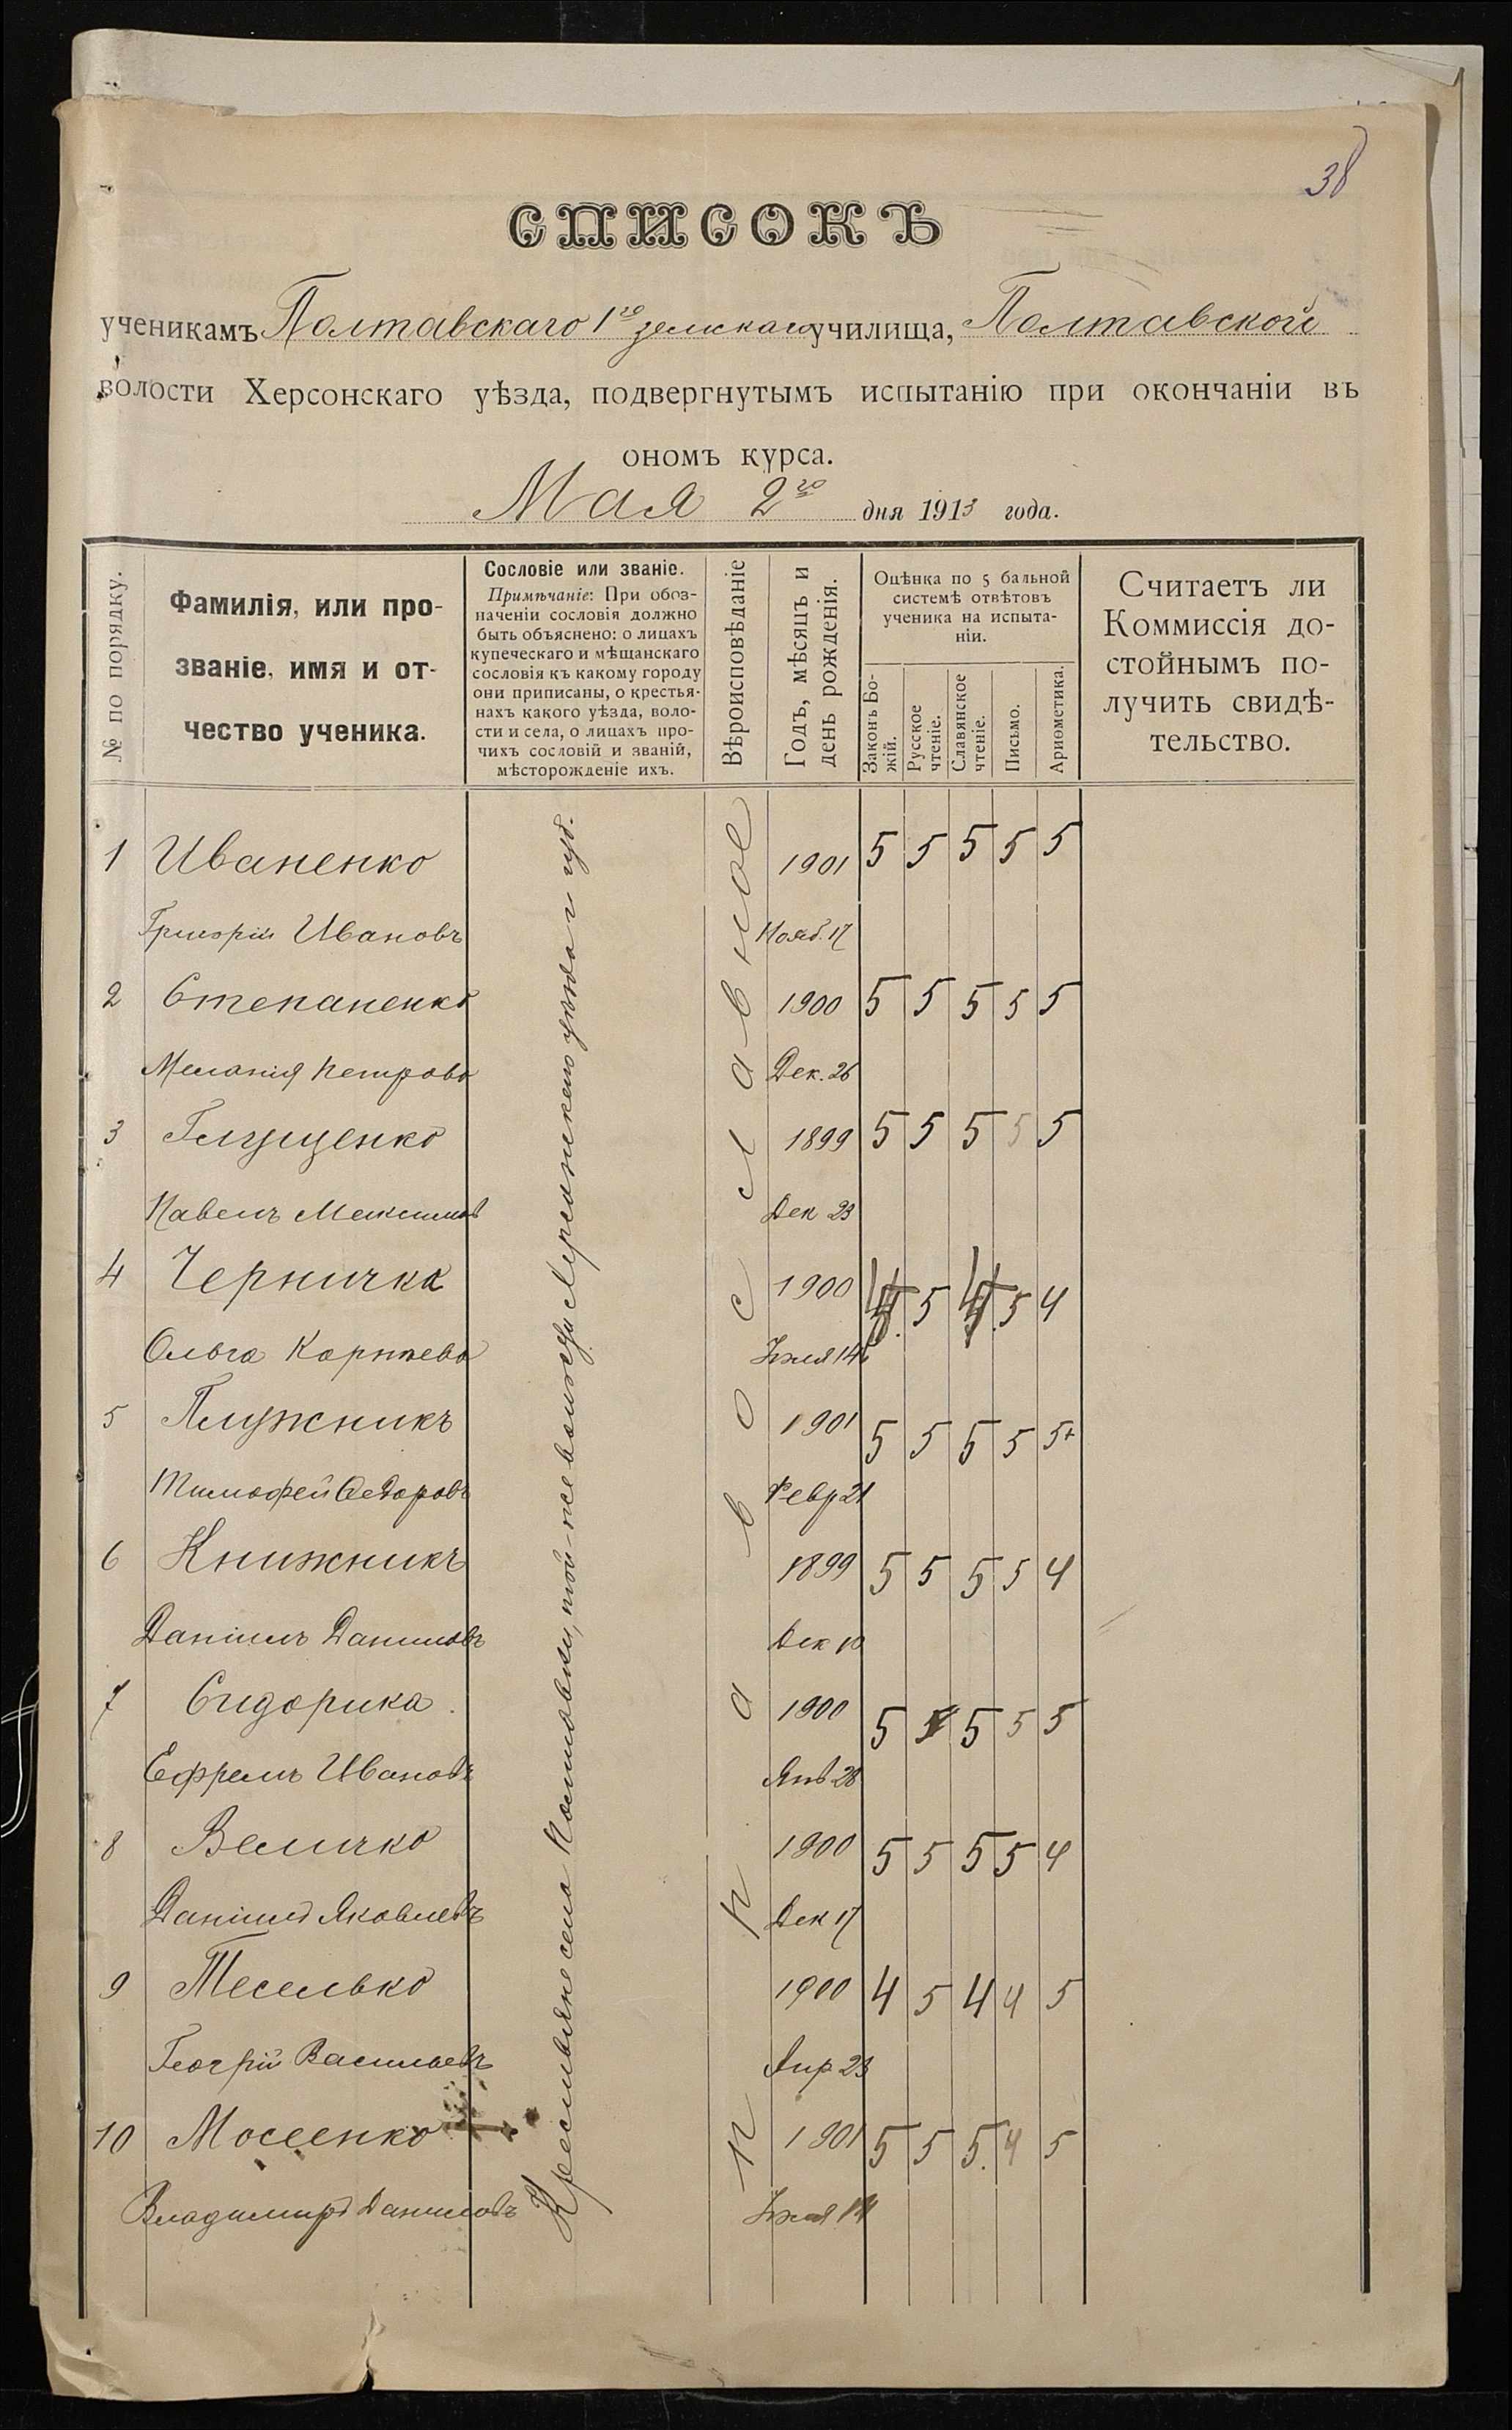 38
СПИСОКЪ
ученикамъ Полтавскаго 1го земскаго училища, Полтавской
волости Херсонскаго уѣзда, подвергнутымъ испытанію при окончаніи въ
ономъ курса.
Мая 2го дня 1913 года.
№ по порядку.
Фамилія, или про-
званіе, имя и от-
чество ученика.
Сословіе или званіе.
Примѣчаніе: При обоз-
наченіи сословія должно
быть объяснено: о лицахъ
купеческаго и мѣщанскаго
сословія къ какому городу
они приписаны, о крестья-
нахъ какого уѣзда, воло-
сти и села, о лицахъ про-
чихъ сословій и званій,
мѣсторожденіе ихъ.
Вѣроисповѣданіе
Годъ, мѣсяцъ и
день рожденія.
Оцѣнка по 5 бальной
системѣ отвѣтовъ
ученика на испыта-
ніи.
Законъ Бо-
жій.
Русское
чтеніе.
Славянское
чтеніе.
Письмо.
Ариѳметика.
Считаетъ ли
Коммиссія до-
стойнымъ по-
лучить свидѣ-
тельство.
Крестьяне села Полтавки, той-же волости Херсонскаго уѣзда и губ.
православное
1 Иваненко 1901 5 5 5 5 5
Григорій Ивановъ Нояб. 17
2 Степаненко 1900 5 5 5 5 5
Меланія Петрова Дек. 26
3 Глущенко 1899 5 5 5 5 5
Павелъ Максимовъ Дек 23
4 Черничка 1900 4 5 4 5 4
Ольга Корнѣева 14
5 Плужникъ 1901 5 5 5 5 5+
Тимофей Ѳедоровъ Февр 21
6 Книжникъ 1899 5 5 5 5 4
Даніилъ Даниловъ Дек 10
7 Сидорика 1900 5 5 5 5 5
Ефремъ Ивановъ Янв 28
8 Величко 1900 5 5 5 5 4
Даніилъ Яковлевъ Дек 17
9 Теселько 1900 4 5 4 4 5
Георгій Васильевъ Апр 23
10 Мосеенко 1901 5 5 5. 4 5
Владимиръ Даниловъ